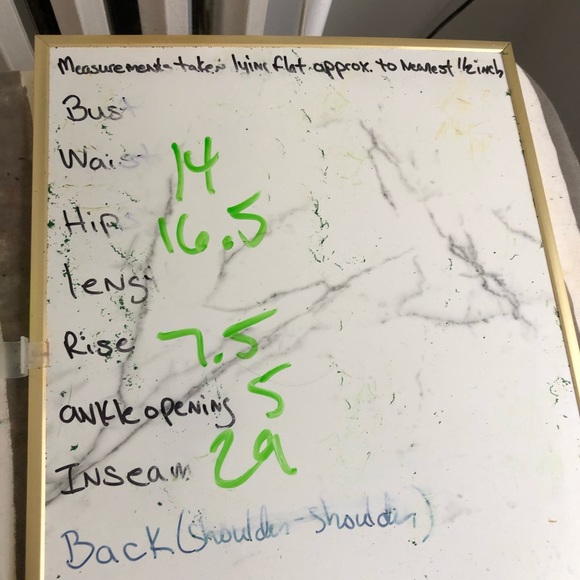 Measurements taken lying flat approx. to nearest 1/2 inch
Bust
Waist 14
Hip 16.5
leng
Rise 7.5
ankle opening 5
Inseam 29
Back (shoulder-shoulder)